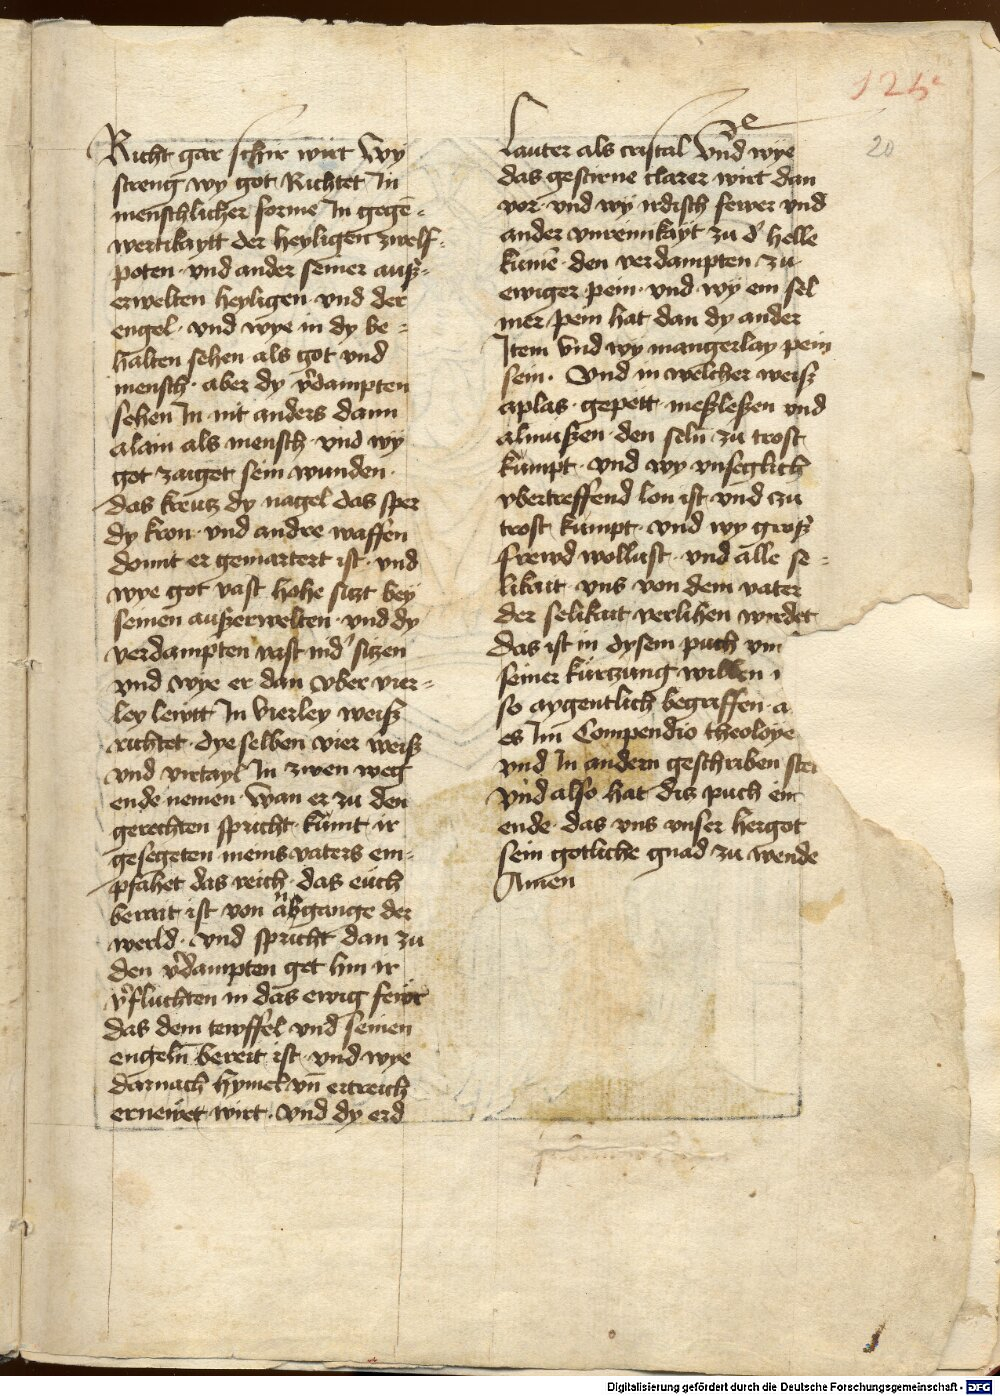 125c
20
Richt gar schir wirt Wy
streng wy got Richtet In
menschlicher forme In gegē-
wertikaytt der heyligen zwelf-
poten · vnd ander seiner auß-
erwelten heyligen · vnd der
engel · vnd wye in dy be-
halten sehen als got vnd
mensch · aber dy v̄dampten
sehen In nit anders dann
alain als mensch · vnd wy
got zaiget sein wunden ·
das kreutz dy nagel das sper
dy kron · vnd andre waffen
domit er gemartert ist · vnd
wye got vast hohe sitzt bey
seinen außerwelten · vnd dy
verdampten vast nid' sitzen
vnd wye er dan vber vier-
ley lewtt In vierley weiß
richtet · dye selben vier weiß
vnd vrtayl In zwen weg
ende nemen · Wan er zu den
gerechten spricht · kūmt ir
gesegeten meins vaters em-
pfahet das reich · das euch
berait ist von abgange der
werld · vnd spricht dan zu
den v̄dampten get hin ir
v̄fluchten in das ewig fewr
das dem tewffel vnd seinen
engeln bereit ist · vnd wye
darnach hymel vn̄ ertreich
ernewet wirt · vnd dy erd
Lauter als cristal Vnd wye
das gestirne clarer wirt dan
vor · vnd wy irdisch fewer vnd
ander vnreinikayt zu d' helle
kūme · den verdampten zu
ewiger pein · vnd wy ein sel
mer pein hat dan dy ander
Item vnd wy mangerlay pein
sein · Vnd in welcher weiß
aplas · gepett · meßleßen vnd
almußen · den seln zu trost
kūmpt · vnd wy vnseglich
vbertreffend lon ist · vnd zu
trost kūmpt · vnd wy groß
frewd wollust · vnd alle se-
likait · vns von dem vater
der selikait verlihen wirdet
das ist in dysem puch vm
seiner kurtzung willen
so aygentlich begriffen · a
es Im Compendio theoloye
vnd In andern geschriben ste
vnd also hat dis puch ein
ende · das vns vnser hergot
sein gotliche gnad zu wende
Amen
Digitalisierung gefördert durch die Deutsche Forschungsgemeinschaft - DFG